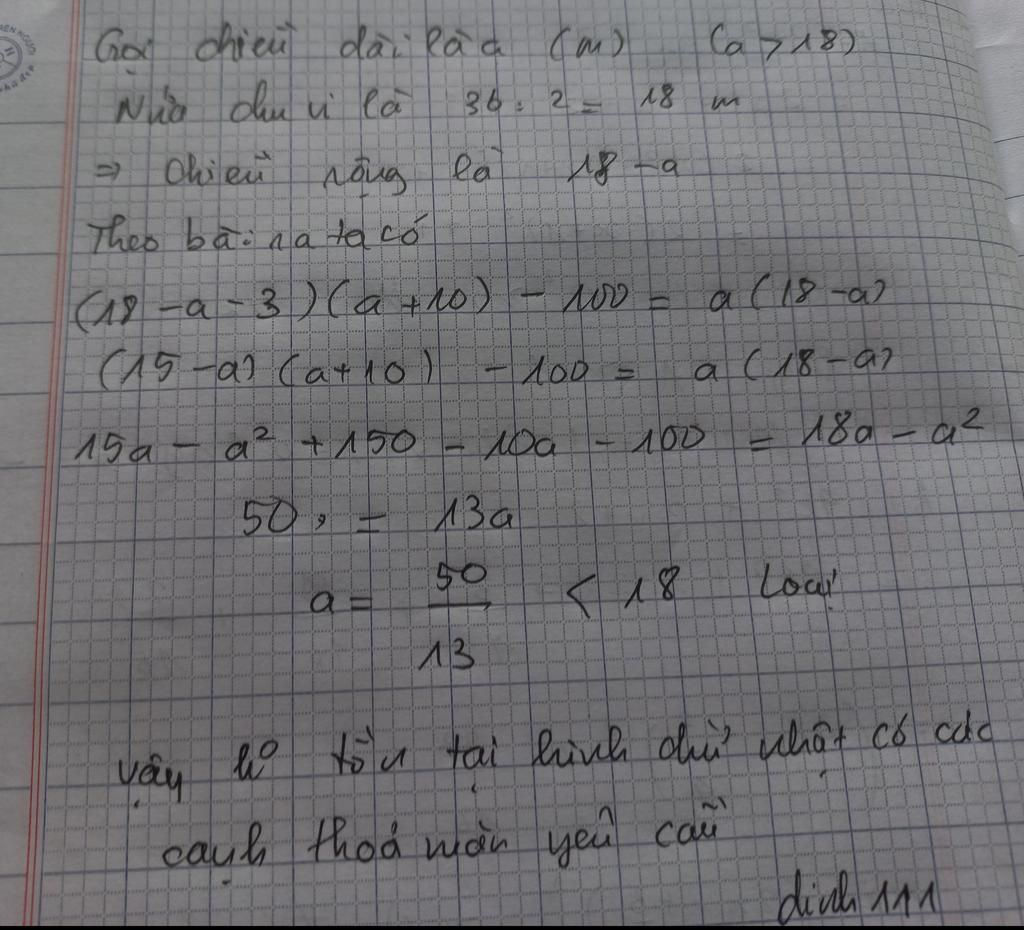 Gọi chiều dài là a (m) (a > 18)
Nửa chu vi là 36 : 2 = 18 m
⇒ Chiều rộng là 18 - a
Theo bài ra ta có
(18 - a - 3)(a + 10) - 100 = a(18 - a)
(15 - a)(a + 10) - 100 = a(18 - a)
15a - a² + 150 - 10a - 100 = 18a - a²
50 = 13a
a = 50/13 < 18 Loại
vậy ko tồn tại hình chữ nhật có các
cạnh thoả mãn yêu cầu